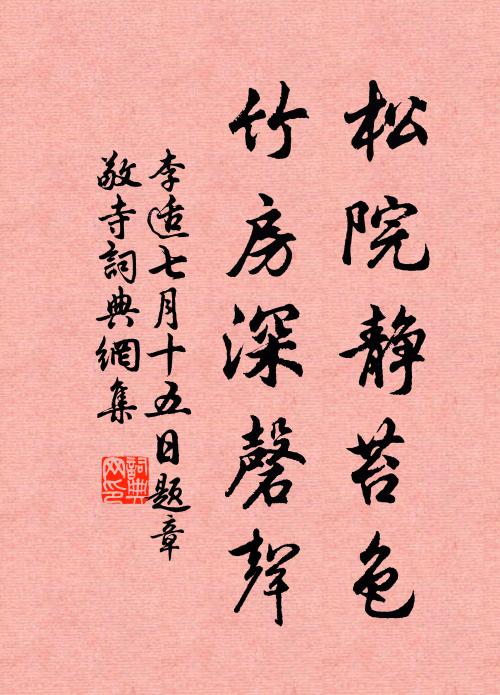 松院静苔色
竹房深磬聲
李适七月十五日题章
敬寺詞典網集
詞典
网印